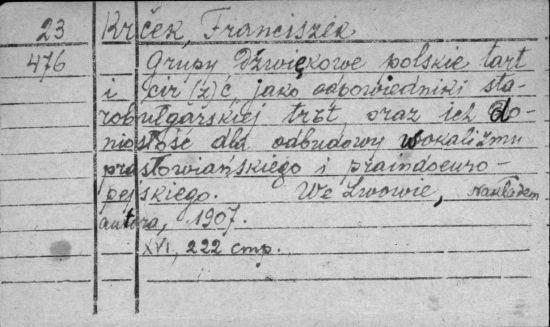 23 Krček, Franciszek
476 Grupy dźwiękowe polskie tart
i cir(z)ć, jako odpowiedniki sta-
robulgarskiej trъt, oraz ich do-
niosłość dla odbudowy wokalizmu
prasłowiańskiego i praindoeuro-
pejskiego. We Lwowie, Nakładem
autora, 1907.
XVI, 222 стр.